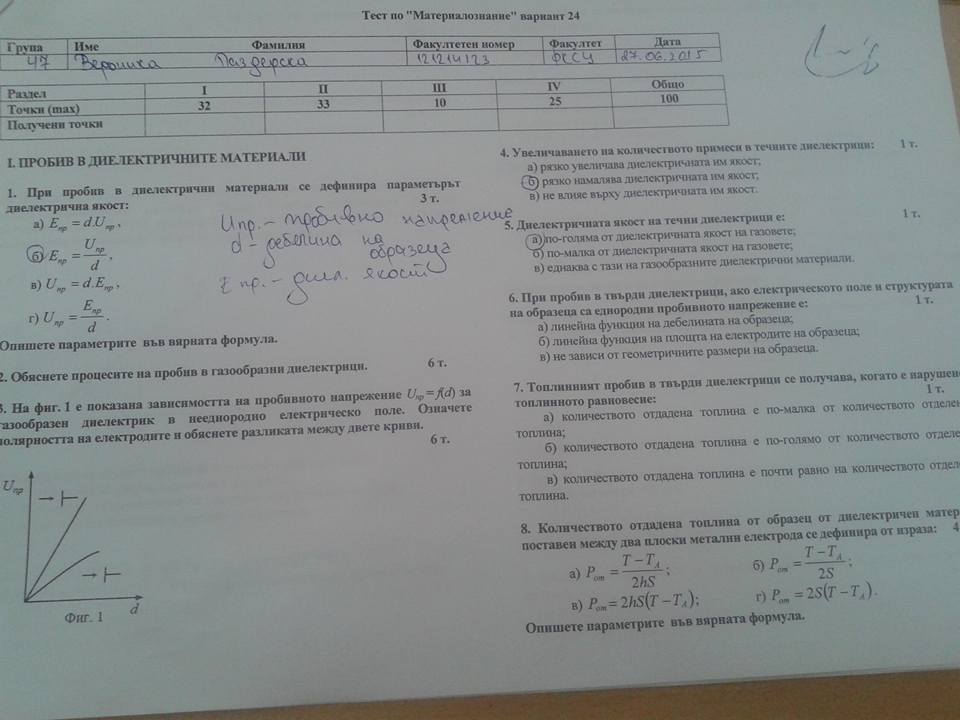 Тест по "Материалознание" вариант 24
Група Име Фамилия Факултетен номер Факултет Дата
47 Вероника 121214123 ФКСУ 27.06.2015
Раздел I II III IV Общо
Точки (max) 32 33 10 25 100
Получени точки
I. ПРОБИВ В ДИЕЛЕКТРИЧНИТЕ МАТЕРИАЛИ
1. При пробив в диелектрични материали се дефинира параметърът
диелектрична якост: 3 т.
а) Eпр = d.Uпр ,
б) Eпр = Uпр / d ,
в) Uпр = d.Eпр ,
г) Uпр = Eпр / d .
Uпр. – пробивно напрежение
d – дебелина на
образеца
E пр. – диел. якост
Опишете параметрите във вярната формула.
2. Обяснете процесите на пробив в газообразни диелектрици. 6 т.
3. На фиг. 1 е показана зависимостта на пробивното напрежение Uпр = f(d) за
газообразен диелектрик в нееднородно електрическо поле. Означете
полярността на електродите и обяснете разликата между двете криви.
6 т.
Uпр
d
Фиг. 1
4. Увеличаването на количеството примеси в течните диелектрици: 1 т.
а) рязко увеличава диелектричната им якост;
б) рязко намалява диелектричната им якост;
в) не влияе върху диелектричната им якост.
5. Диелектричната якост на течни диелектрици е: 1 т.
а) по-голяма от диелектричната якост на газовете;
б) по-малка от диелектричната якост на газовете;
в) еднаква с тази на газообразните диелектрични материали.
6. При пробив в твърди диелектрици, ако електрическото поле и структурата
на образеца са еднородни пробивното напрежение е: 1 т.
а) линейна функция на дебелината на образеца;
б) линейна функция на площта на електродите на образеца;
в) не зависи от геометричните размери на образеца.
7. Топлинният пробив в твърди диелектрици се получава, когато е нарушено
топлинното равновесие: 1 т.
а) количеството отдадена топлина е по-малка от количеството отделен
топлина;
б) количеството отдадена топлина е по-голямо от количеството отделе
топлина;
в) количеството отдадена топлина е почти равно на количеството отдел
топлина.
8. Количеството отдадена топлина от образец от диелектричен матер
поставен между два плоски метални електрода се дефинира от израза: 4
а) Pот = (T − TA) / 2hS ; б) Pот = (T − TA) / 2S ;
в) Pот = 2hS(T − TA); г) Pот = 2S(T − TA).
Опишете параметрите във вярната формула.